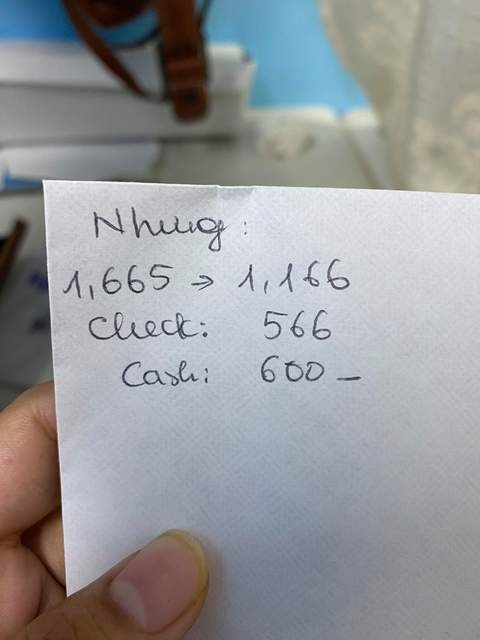 Nhung:
1,665 → 1,166
Check: 566
Cash: 600 –